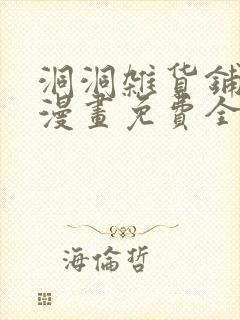 洞洞雜貨鋪
漫畫免費全
海倫哲